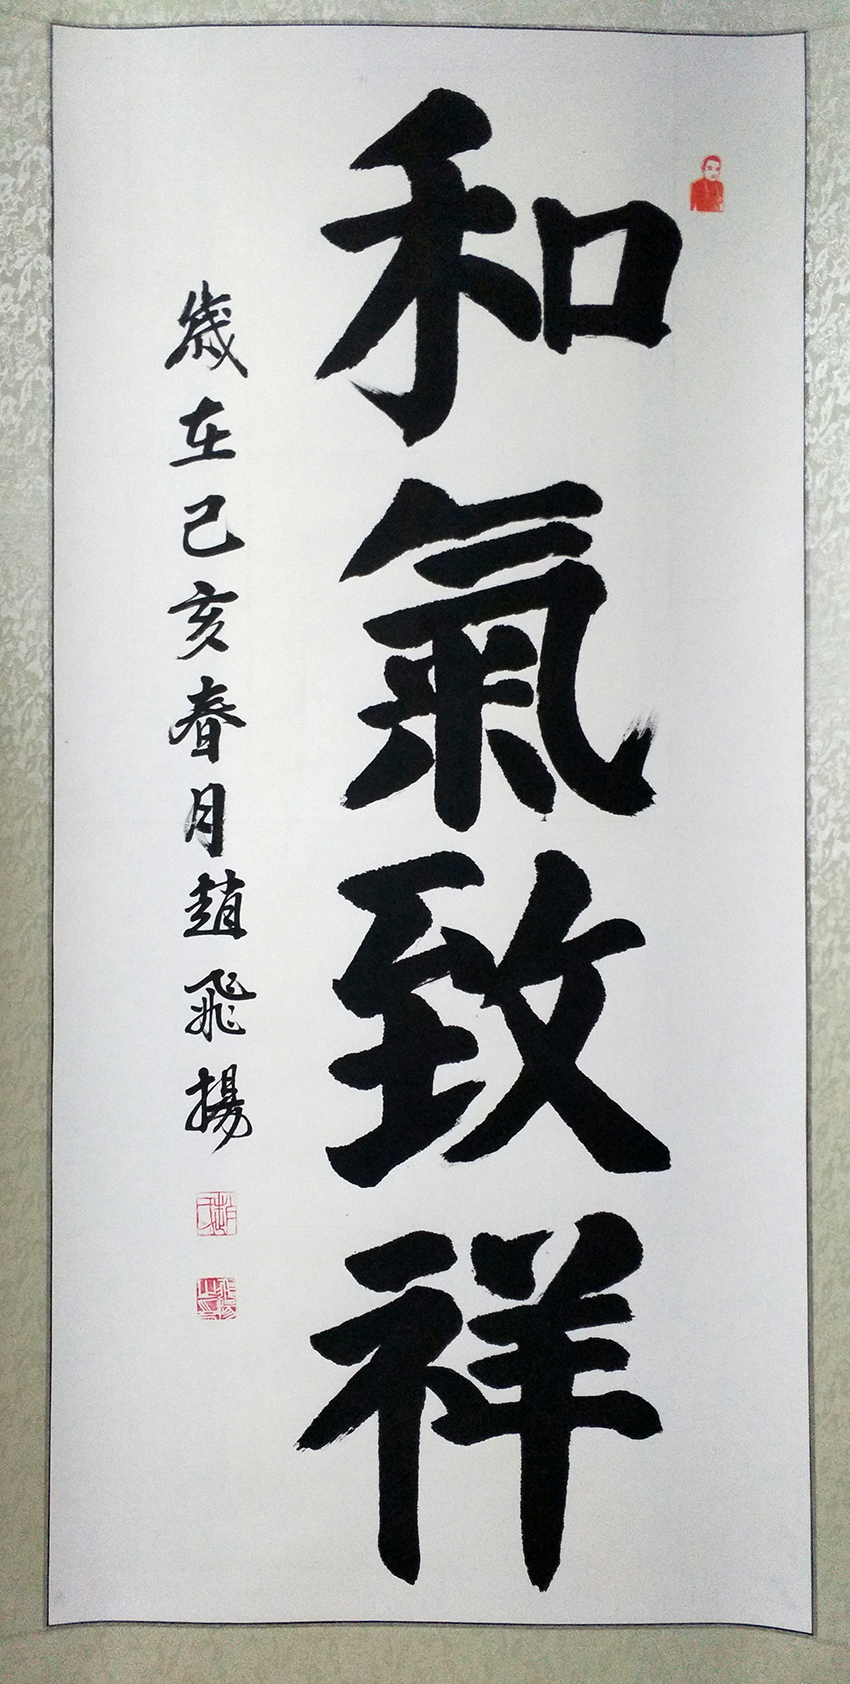 和氣致祥
歲在己亥春月趙飛揚